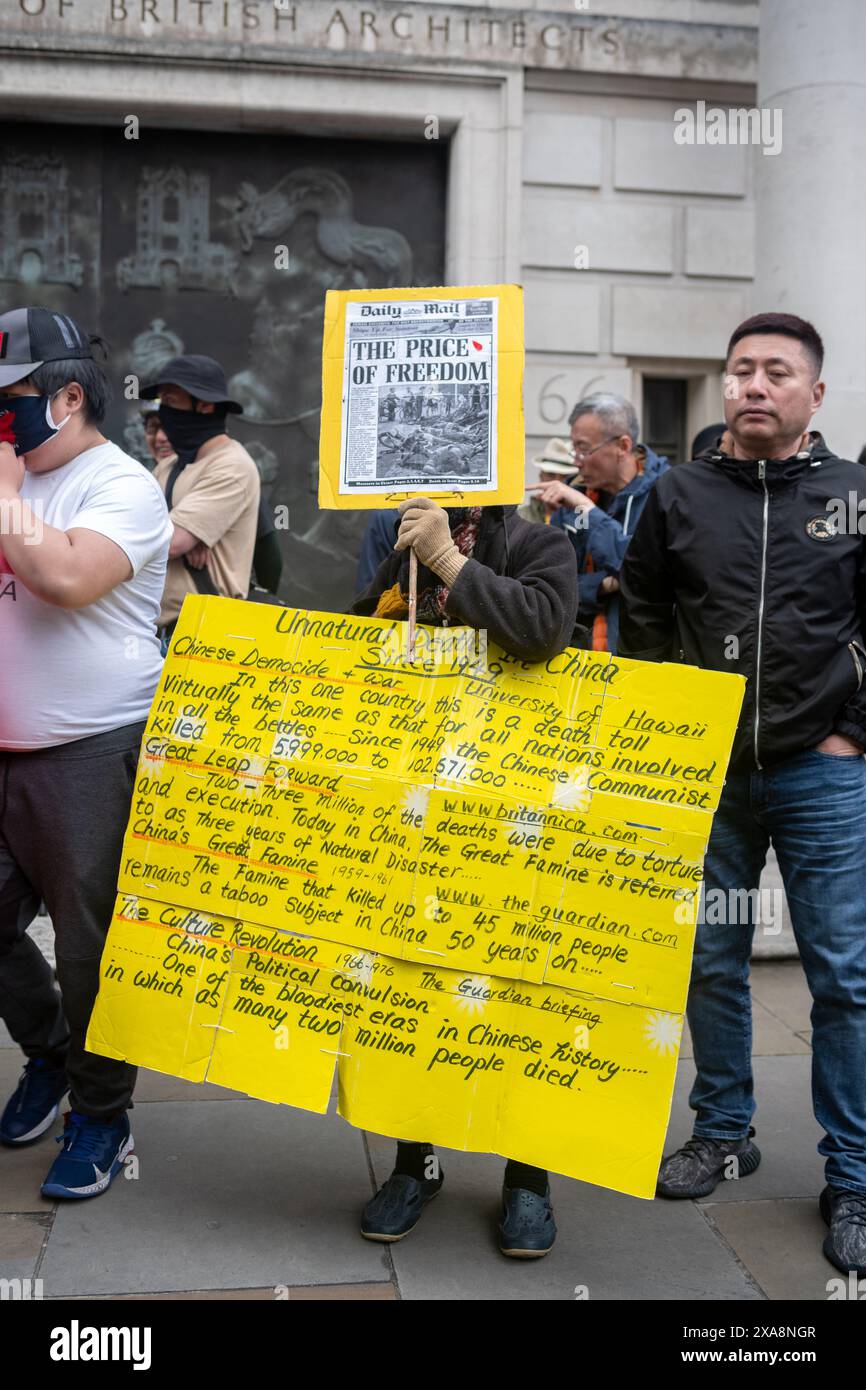 OF BRITISH ARCHITECTS
66
Daily Mail
THE PRICE
OF FREEDOM
Unnatural Deaths in China
Since 1949
Chinese Democide + war University of Hawaii
In this one country this is a death toll
Virtually the same as that for all nations involved
in all the bettles --- Since 1949 the Chinese Communist
killed from 5.999.000 to 102.671.000 .....
Great Leap Forward www.britannica.com
--- Two - Three million of the deaths were due to torture
and execution. Today in China, The Great Famine is referred
to as Three years of Natural Disaster....
China's Great Famine 1959-1961 www.the guardian.com
The Famine that killed up to 45 million people
remains a taboo Subject in China 50 years on.....
The Culture Revolution 1966-1976 The Guardian briefing
...... China's Political convulsion
One of the bloodiest eras in Chinese history.....
in which as many two million people died.
alamy
Image ID: 2XA8NGR
www.alamy.com